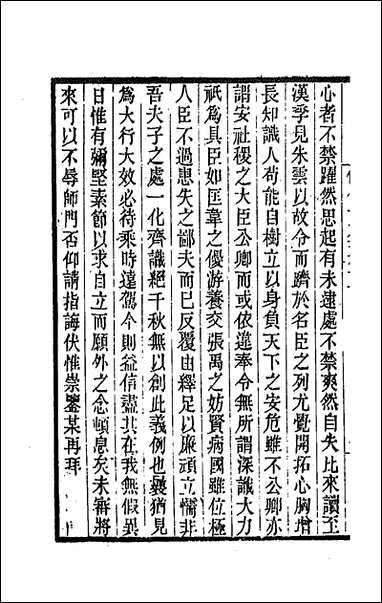 心者不禁躍然思起有未遠處不禁爽然自失比來讀至
漢孚見朱雲以故令而躋於名臣之列尤覺開拓心胸增
長知識人苟能自樹立以身負天下之安危雖不公卿亦
謂安社稷之大臣公卿而或依違奉令無所謂深識大力
祇為具臣如匡韋之優游養交張禹之妨賢病國雖位極
人臣不過患失之鄙夫而已反覆由繹足以廉頑立懦非
吾夫子之處一化齊識絕千秋無以創此義例也曩猶見
為大行大效必待乘時遠駕今則益信盡其在我無假異
日惟有彌堅素節以求自立而願外之念頓息矣未審將
來可以不辱師門否仰請指誨伏惟崇鑒某再拜